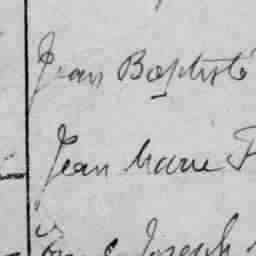 Jean Baptiste
Jean Marie
Joseph